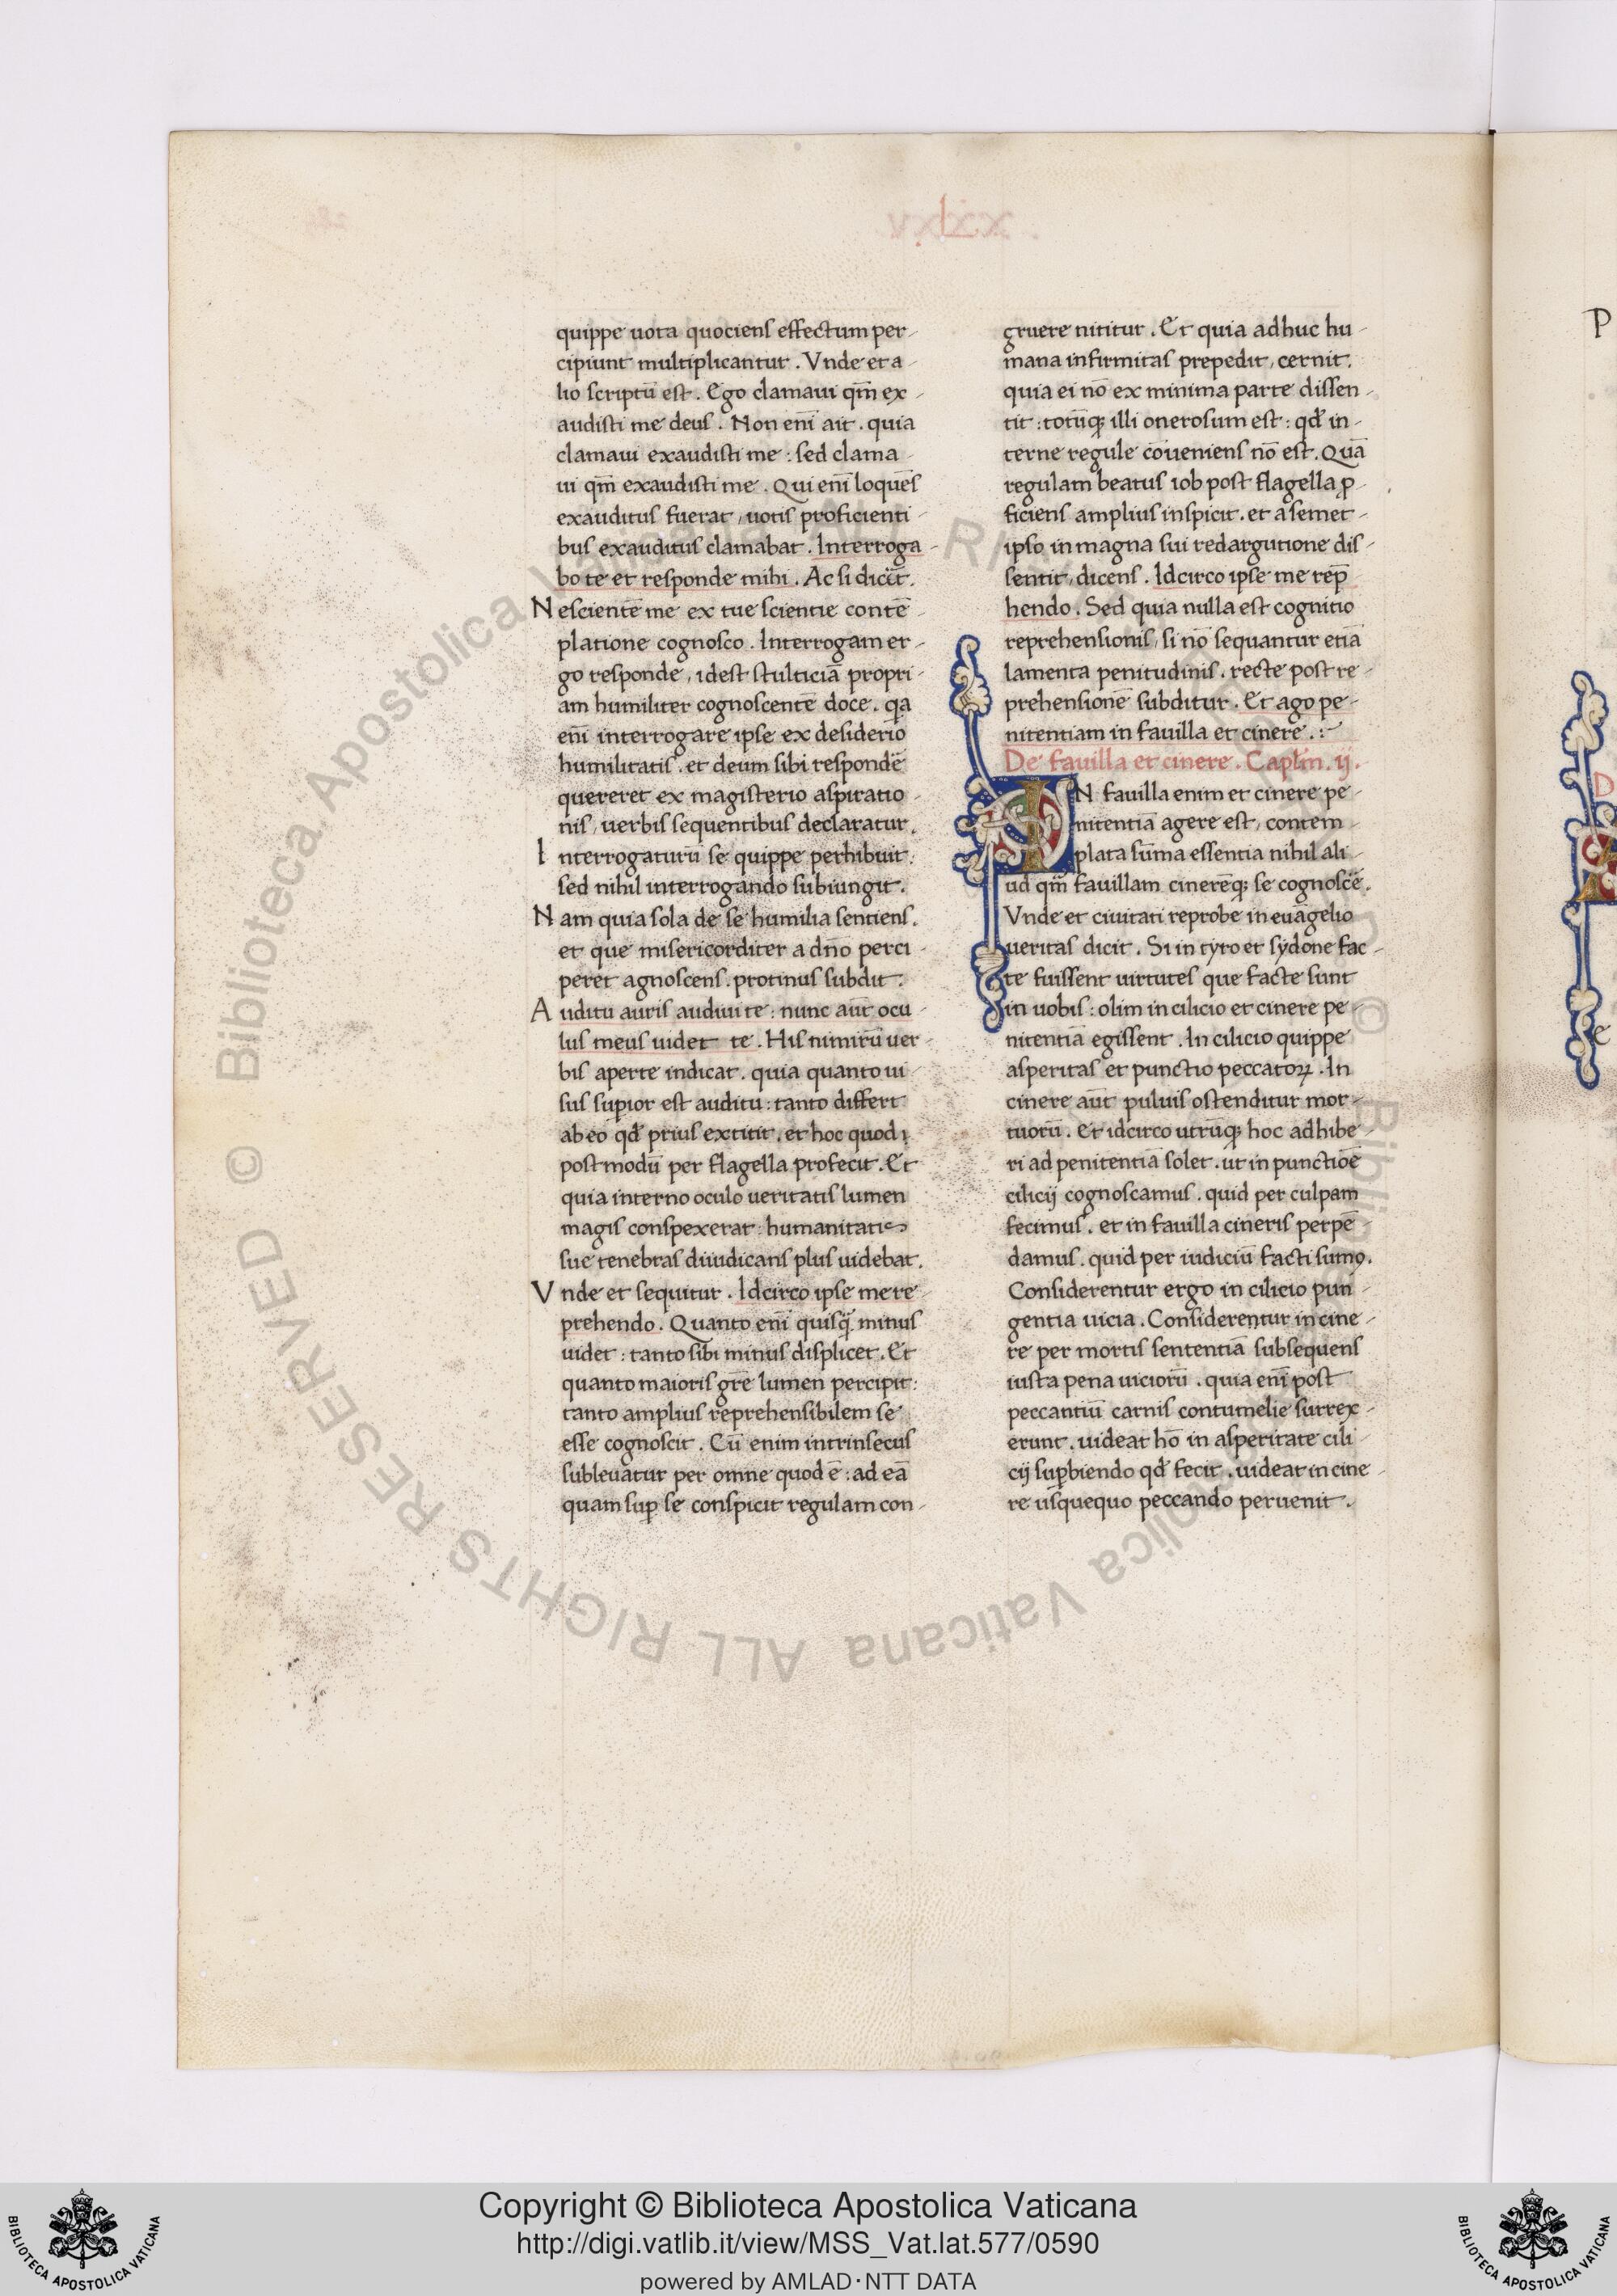 quippe uota quociens effectum per-
cipiunt multiplicantur. Vnde et a-
lio scriptū est. Ego clamaui qm̄ ex-
audisti me deus. Non eni̅ ait. quia
clamaui exaudisti me: sed clama-
ui qm̄ exaudisti me. Qui eni̅ loquēs
exauditus fuerat, uotis proficienti-
bus exauditus clamabat. Interroga-
bo te et responde mihi. Ac si dicēt.
Nescientē me ex tue scientie contē-
platione cognosco. Interrogam er-
go responde, idest stulticiā propri-
am humiliter cognoscentē doce. qa
eni̅ interrogare ipse ex desiderio
humilitatis. et deum sibi respondē
quereret ex magisterio aspiratio-
nis, uerbis sequentibus declaratur.
Interrogaturū se quippe perhibuit:
sed nihil interrogando subiungit.
Nam quia sola de se humilia sentiens.
et que misericorditer a dn̄o perci-
peret agnoscens. protinus subdit.
Auditu auris audiui te: nunc aūt ocu-
lus meus uidet te. His nimirū uer-
bis aperte indicat. quia quanto ui-
sus supior est auditu: tanto differt
ab eo qd̄ prius extitit. et hoc quod
postmodū per flagella profecit. Et
quia interno oculo ueritatis lumen
magis conspexerat: humanitatis
sue tenebras diiudicans plus uidebat.
Vnde et sequitur. Idcirco ipse me re-
prehendo. Quanto eni̅ quisq̄ minus
uidet: tanto sibi minus displicet. Et
quanto maioris grē lumen percipit:
tanto amplius reprehensibilem se
esse cognoscit. Cū enim intrinsecus
subleuatur per omne quod ē: ad eā
quam sup se conspicit regulam con-
gruere nititur. Et quia adhuc hu-
mana infirmitas prepedit, cernit.
quia ei nō ex minima parte dissen-
tit: totūq; illi onerosum est: qd̄ in-
terne regule cōueniens nō est. Quā
regulam beatus iob post flagella ꝓ-
ficiens amplius inspicit. et a semet-
ipso in magna sui redargutione dis-
sentit, dicens. Idcirco ipse me rep̄
hendo. Sed quia nulla est cognitio
reprehensionis, si nō sequantur etiā
lamenta penitudinis. recte post re-
prehensionē subditur. Et ago pe-
nitentiam in fauilla et cinere.:
De fauilla et cinere. Caplm̄. ij.
IN fauilla enim et cinere pe-
nitentiā agere est, contem-
plata sūma essentia nihil ali-
ud qm̄ fauillam cinerēq; se cognoscē.
Vnde et ciuitati reprobe in euāgelio
ueritas dicit. Si in tyro et sydone fac-
te fuissent uirtutes que facte sunt
in uobis: olim in cilicio et cinere pe-
nitentiā egissent. In cilicio quippe
asperitas et punctio peccatoꝝ. In
cinere aūt puluis ostenditur mor-
tuorū. Et idcirco utrūq; hoc adhibe-
ri ad penitentiā solet. ut in punctiōe
cilicij cognoscamus. quid per culpam
fecimus. et in fauilla cineris perpē-
damus. quid per iudiciū facti sumꝰ.
Considerentur ergo in cilicio pun-
gentia uicia. Considerentur in cine-
re per mortis sententiā subsequens
iusta pena uiciorū. quia eni̅ post
peccantiū carnis contumelie surrex-
erunt. uideat hō in asperitate cili-
cij supbiendo qd̄ fecit. uideat in cine-
re usquequo peccando peruenit.
P
D
e
© Biblioteca Apostolica Vaticana ALL RIGHTS RESERVED
Copyright © Biblioteca Apostolica Vaticana
http://digi.vatlib.it/view/MSS_Vat.lat.577/0590
powered by AMLAD·NTT DATA
BIBLIOTECA APOSTOLICA VATICANA
BIBLIOTECA APOSTOLICA VATICANA